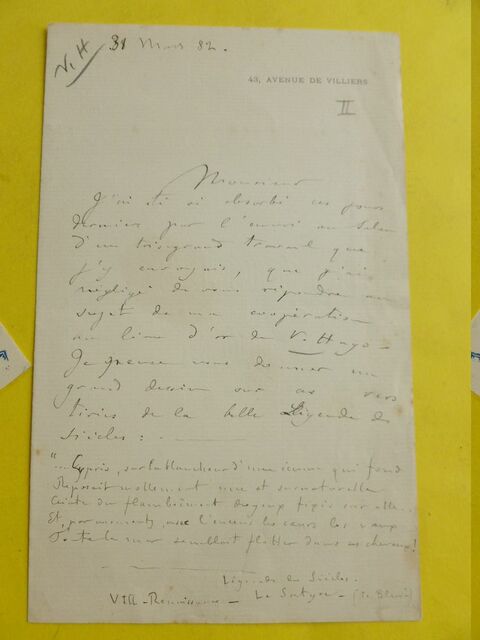 V. H
31 Mars 82.
43, AVENUE DE VILLIERS
II
Monsieur
J'ai été si absorbé ces jours
derniers par l'envoi au Salon
d'un très grand travail que
j'y envoyais, que j'ai
négligé de vous répondre au
sujet de ma coopération
au livre d'or de V. Hugo -
Je pense vous donner un
grand dessin sur ces vers
tirés de la belle Légende des
Siècles :
"... Cypris, sur la blancheur d'une écume qui fond
Reposait mollement nue et surnaturelle
Ceinte du flamboiement des yeux fixés sur elle..
Et, par moments, avec l'encens, les cœurs, les vœux
Toute la mer semblait flotter dans ses cheveux !
Légende des Siècles.
VIII - Renaissance - Le Satyre - (le Bleu)